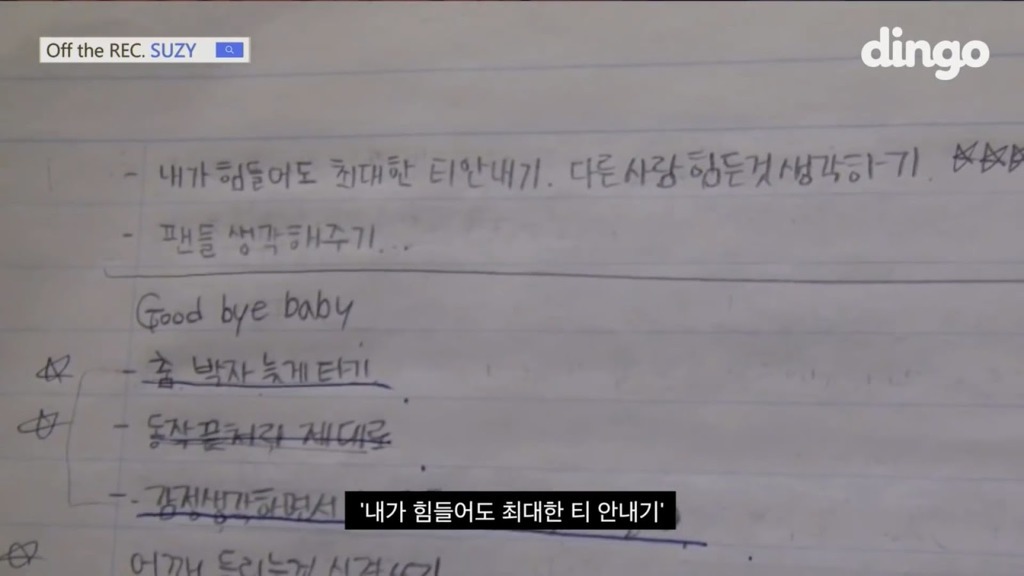 Off the REC. SUZY
dingo
- 내가 힘들어도 최대한 티안내기. 다른사람 힘든것 생각하기.
- 팬들 생각해주기...
Good bye baby
- 춤 박자 늦게타기
- 동작끝처리 제대로
- 감정생각하면서
'내가 힘들어도 최대한 티 안내기'
어깨